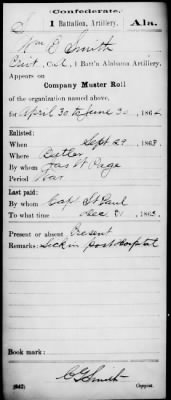 (Confederate.)
S 1 Battalion, Artillery. Ala.
Wm E Smith
Co. 1 Batt'n Alabama Artillery.
Appears on
Company Muster Roll
of the organization named above,
for April 30 to June 30, 1864.
Enlisted:
When Sept 29, 1863.
Where
By whom Page
Period War
Last paid:
By whom Cap St Paul
To what time Dec 31, 1863.
Present or absent Present
Remarks: Sick in post hospital
Book mark:
(642) C G Smith
Copyist.